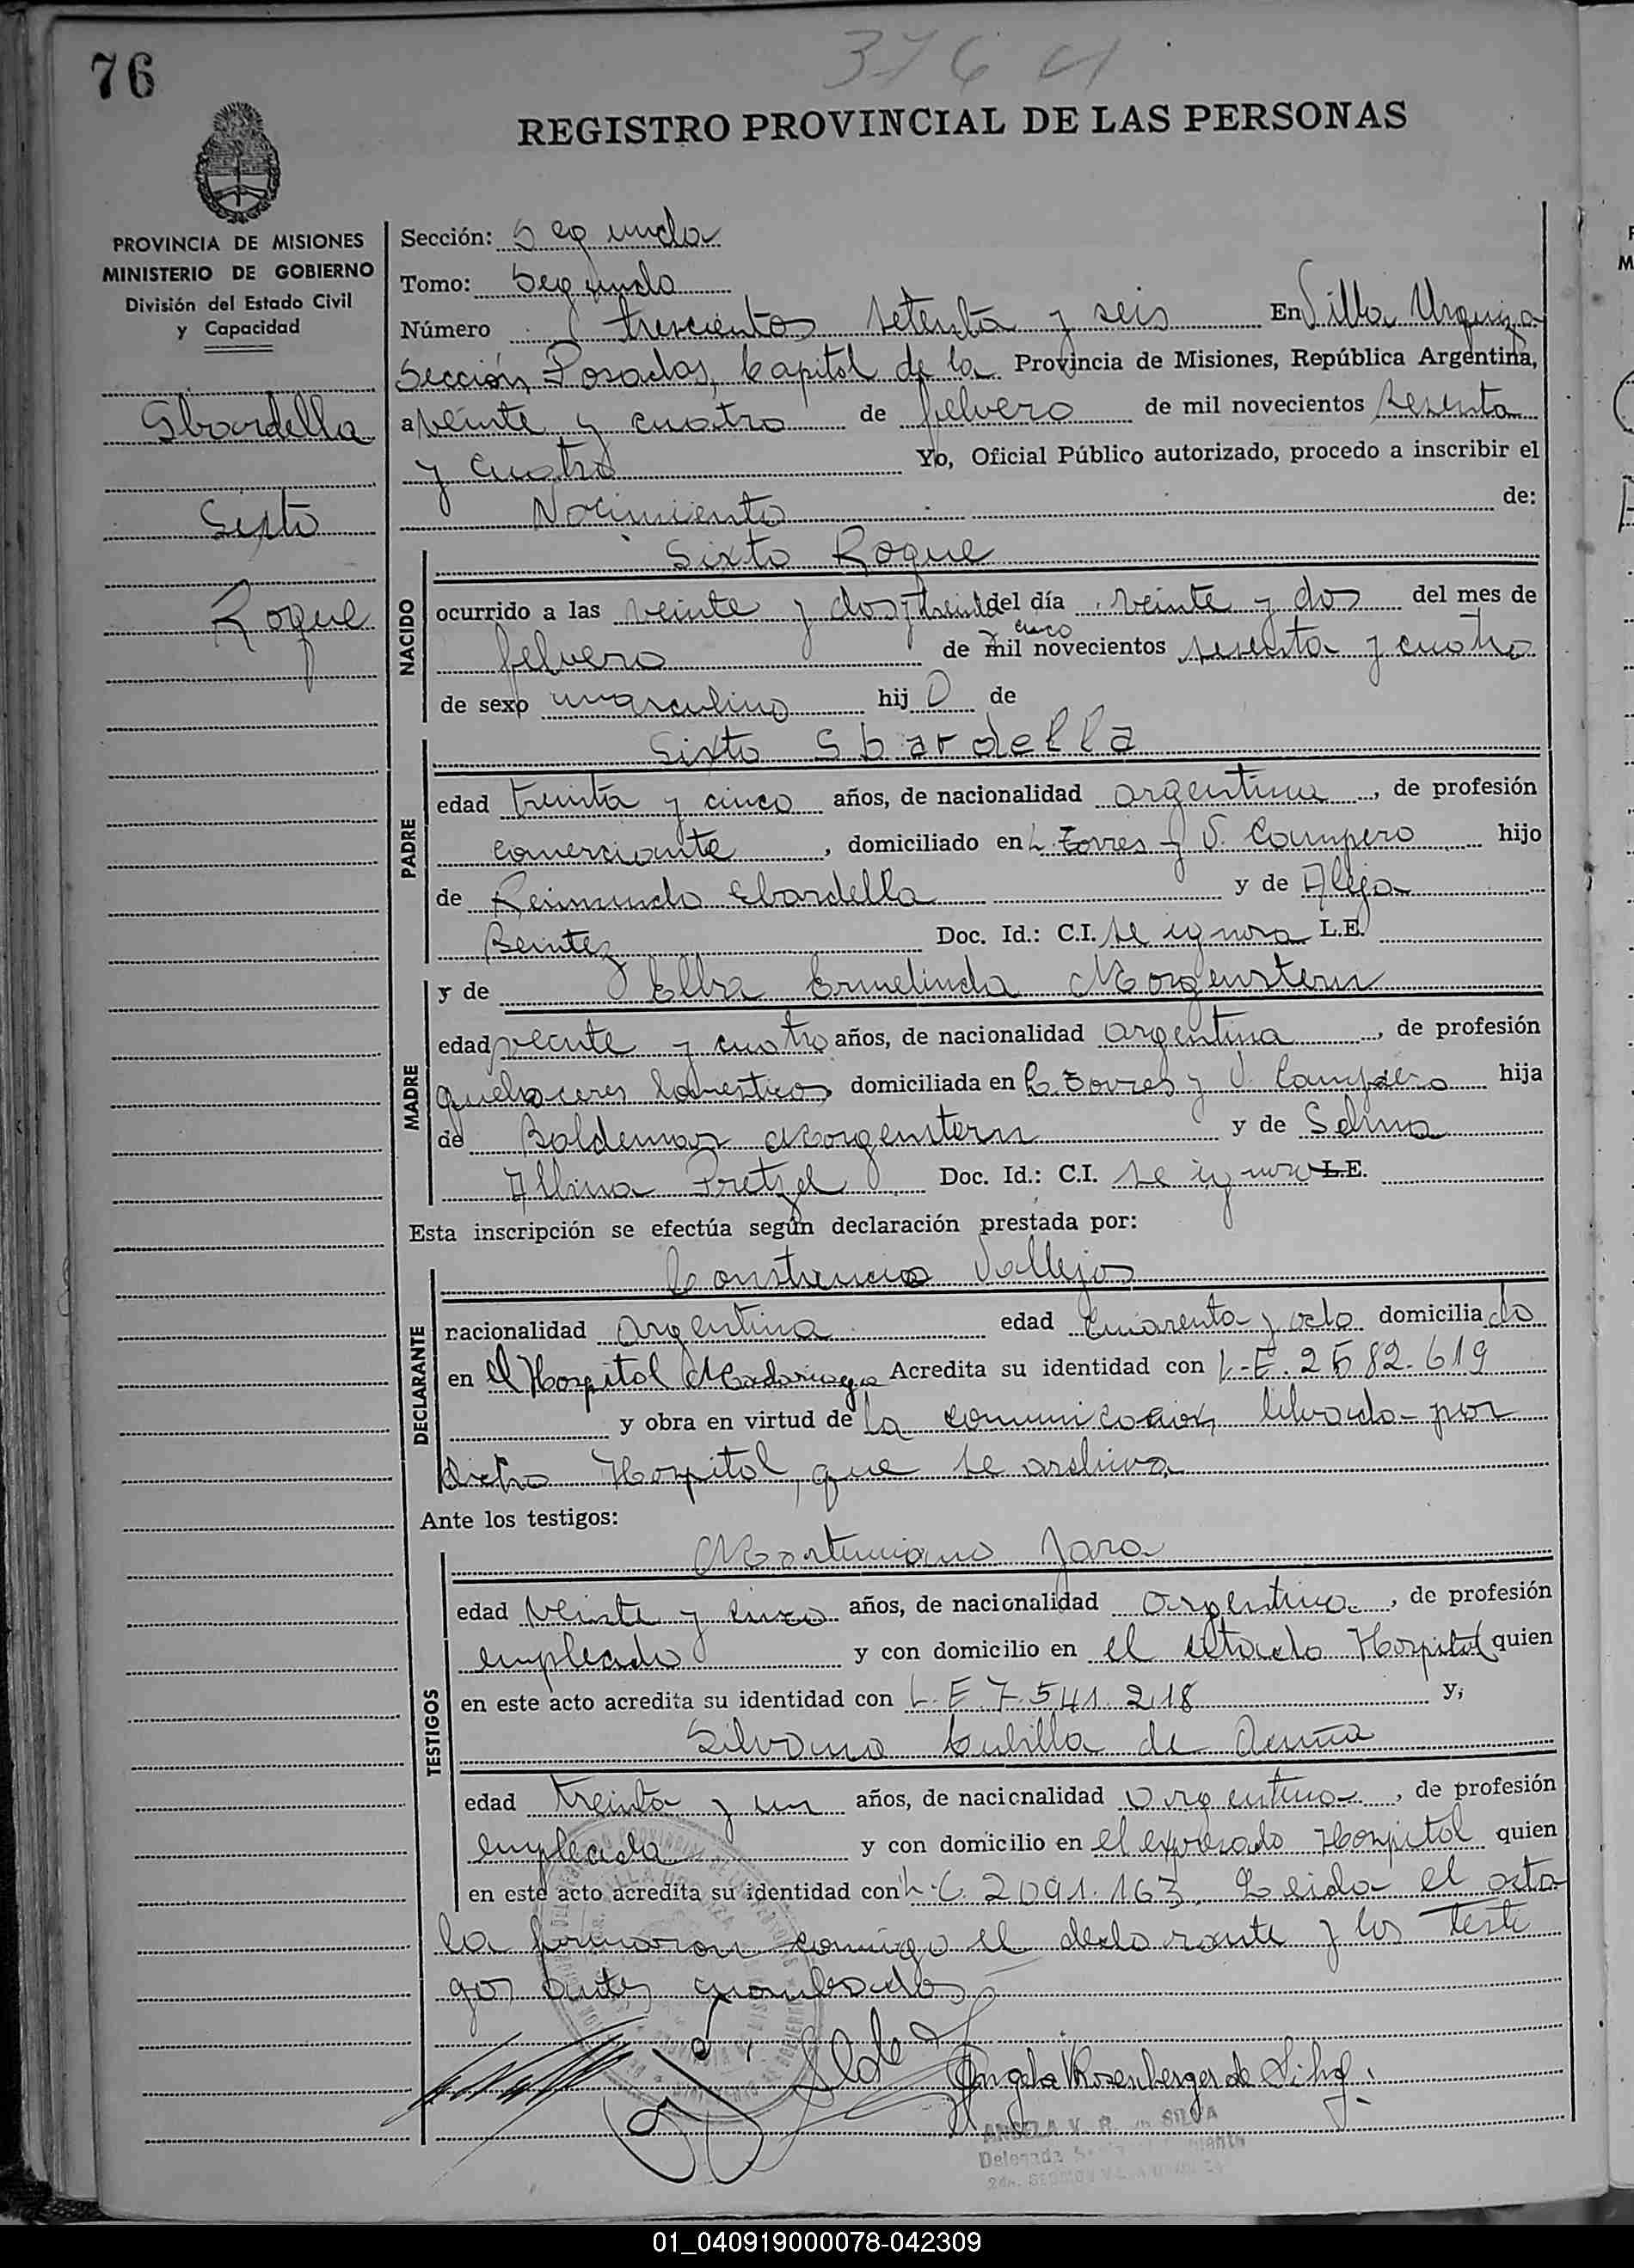 76
376
REGISTRO PROVINCIAL DE LAS PERSONAS
PROVINCIA DE MISIONES
MINISTERIO DE GOBIERNO
División del Estado Civil
y Capacidad
Sbardella
Sixto
Roque
Sección: Segunda
Tomo: Segundo
Número trescientos setenta y seis En Villa Urquiza
Sección, Posadas, Capital de la Provincia de Misiones, República Argentina,
a veinte y cuatro de febrero de mil novecientos sesenta
y cuatro Yo, Oficial Público autorizado, procedo a inscribir el
Nacimiento de:
NACIDO
Sixto Roque
ocurrido a las veinte y dos y treinta del día veinte y dos del mes de
y cinco
febrero de mil novecientos sesenta y cuatro
de sexo masculino hijo de
PADRE
Sixto Sbardella
edad treinta y cinco años, de nacionalidad argentina, de profesión
comerciante, domiciliado en L. Torres y V. Campero hijo
de Reimundo Sbardella y de Aleja
Benitez Doc. Id.: C.I. se ignora L.E.
MADRE
y de Elba Ermelinda Morgenstern
edad veinte y cuatro años, de nacionalidad argentina, de profesión
quehaceres domesticos domiciliada en L. Torres y V. Campero hija
de Baldemar Morgenstern y de Selma
Albina Pretzel Doc. Id.: C.I. se ignora L.E.
Esta inscripción se efectúa según declaración prestada por:
DECLARANTE
Vallejos
nacionalidad argentina edad cuarenta y ocho domiciliado
en el Hospital Madariaga Acredita su identidad con L.E. 2582.619
y obra en virtud de la comunicación librada por
dicho Hospital, que se archiva
Ante los testigos:
TESTIGOS
Martiniano Jara
edad veinte y cinco años, de nacionalidad argentina, de profesión
empleado y con domicilio en el citado Hospital quien
en este acto acredita su identidad con L.E. 7.541.218 y;
Silvana Cubilla de Acuña
edad treinta y un años, de nacionalidad argentina, de profesión
empleada y con domicilio en el expresado Hospital quien
en este acto acredita su identidad con L.C. 2091.163. Leida el acta
la firmaron conmigo el declarante y los testi
gos antes nombrados
Angela V Rosenberger de Silva
ANGELA V. R. de SILVA
Delegada
01_040919000078-042309